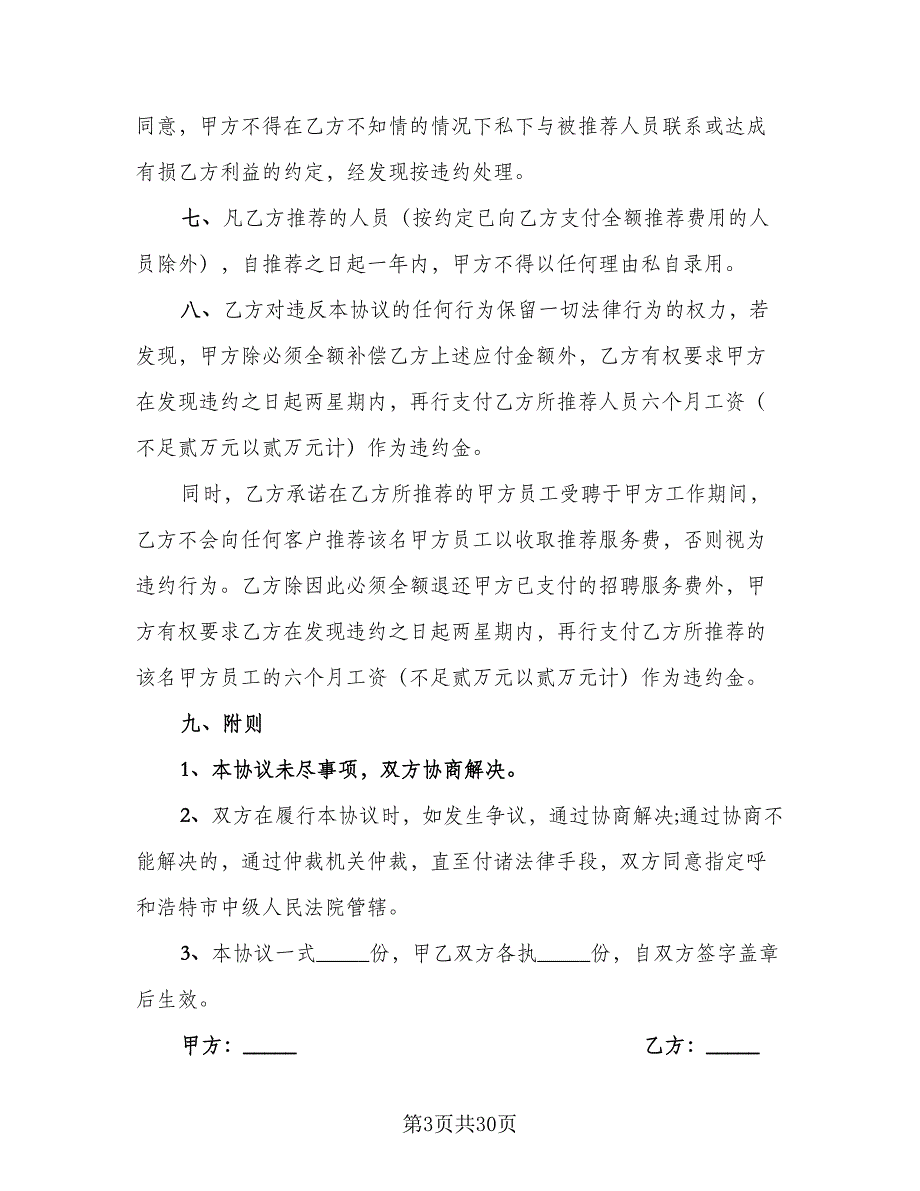 同意，甲方不得在乙方不知情的情况下私下与被推荐人员联系或达成
有损乙方利益的约定，经发现按违约处理。
七、凡乙方推荐的人员（按约定已向乙方支付全额推荐费用的人
员除外），自推荐之日起一年内，甲方不得以任何理由私自录用。
八、乙方对违反本协议的任何行为保留一切法律行为的权力，若
发现，甲方除必须全额补偿乙方上述应付金额外，乙方有权要求甲方
在发现违约之日起两星期内，再行支付乙方所推荐人员六个月工资（
不足贰万元以贰万元计）作为违约金。
同时，乙方承诺在乙方所推荐的甲方员工受聘于甲方工作期间，
乙方不会向任何客户推荐该名甲方员工以收取推荐服务费，否则视为
违约行为。乙方除因此必须全额退还甲方已支付的招聘服务费外，甲
方有权要求乙方在发现违约之日起两星期内，再行支付乙方所推荐的
该名甲方员工的六个月工资（不足贰万元以贰万元计）作为违约金。
九、附则
1、本协议未尽事项，双方协商解决。
2、双方在履行本协议时，如发生争议，通过协商解决;通过协商不
能解决的，通过仲裁机关仲裁，直至付诸法律手段，双方同意指定呼
和浩特市中级人民法院管辖。
3、本协议一式_____份，甲乙双方各执_____份，自双方签字盖章
后生效。
甲方：_____ 乙方：_____
第3页共30页